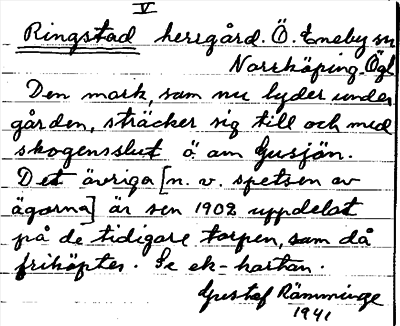 V
Ringstad herrgård. Ö. Eneby sn
Norrköping. Ögl
Den mark, som nu lyder under
gården, sträcker sig till och med
skogensslut ö om Gusjön.
Det övriga [n. v. spetsen av
ägorna] är sen 1902 uppdelat
på de tidigare torpen, som då
friköptes. Se ek-kartan.
Gustaf Rämminge
1941